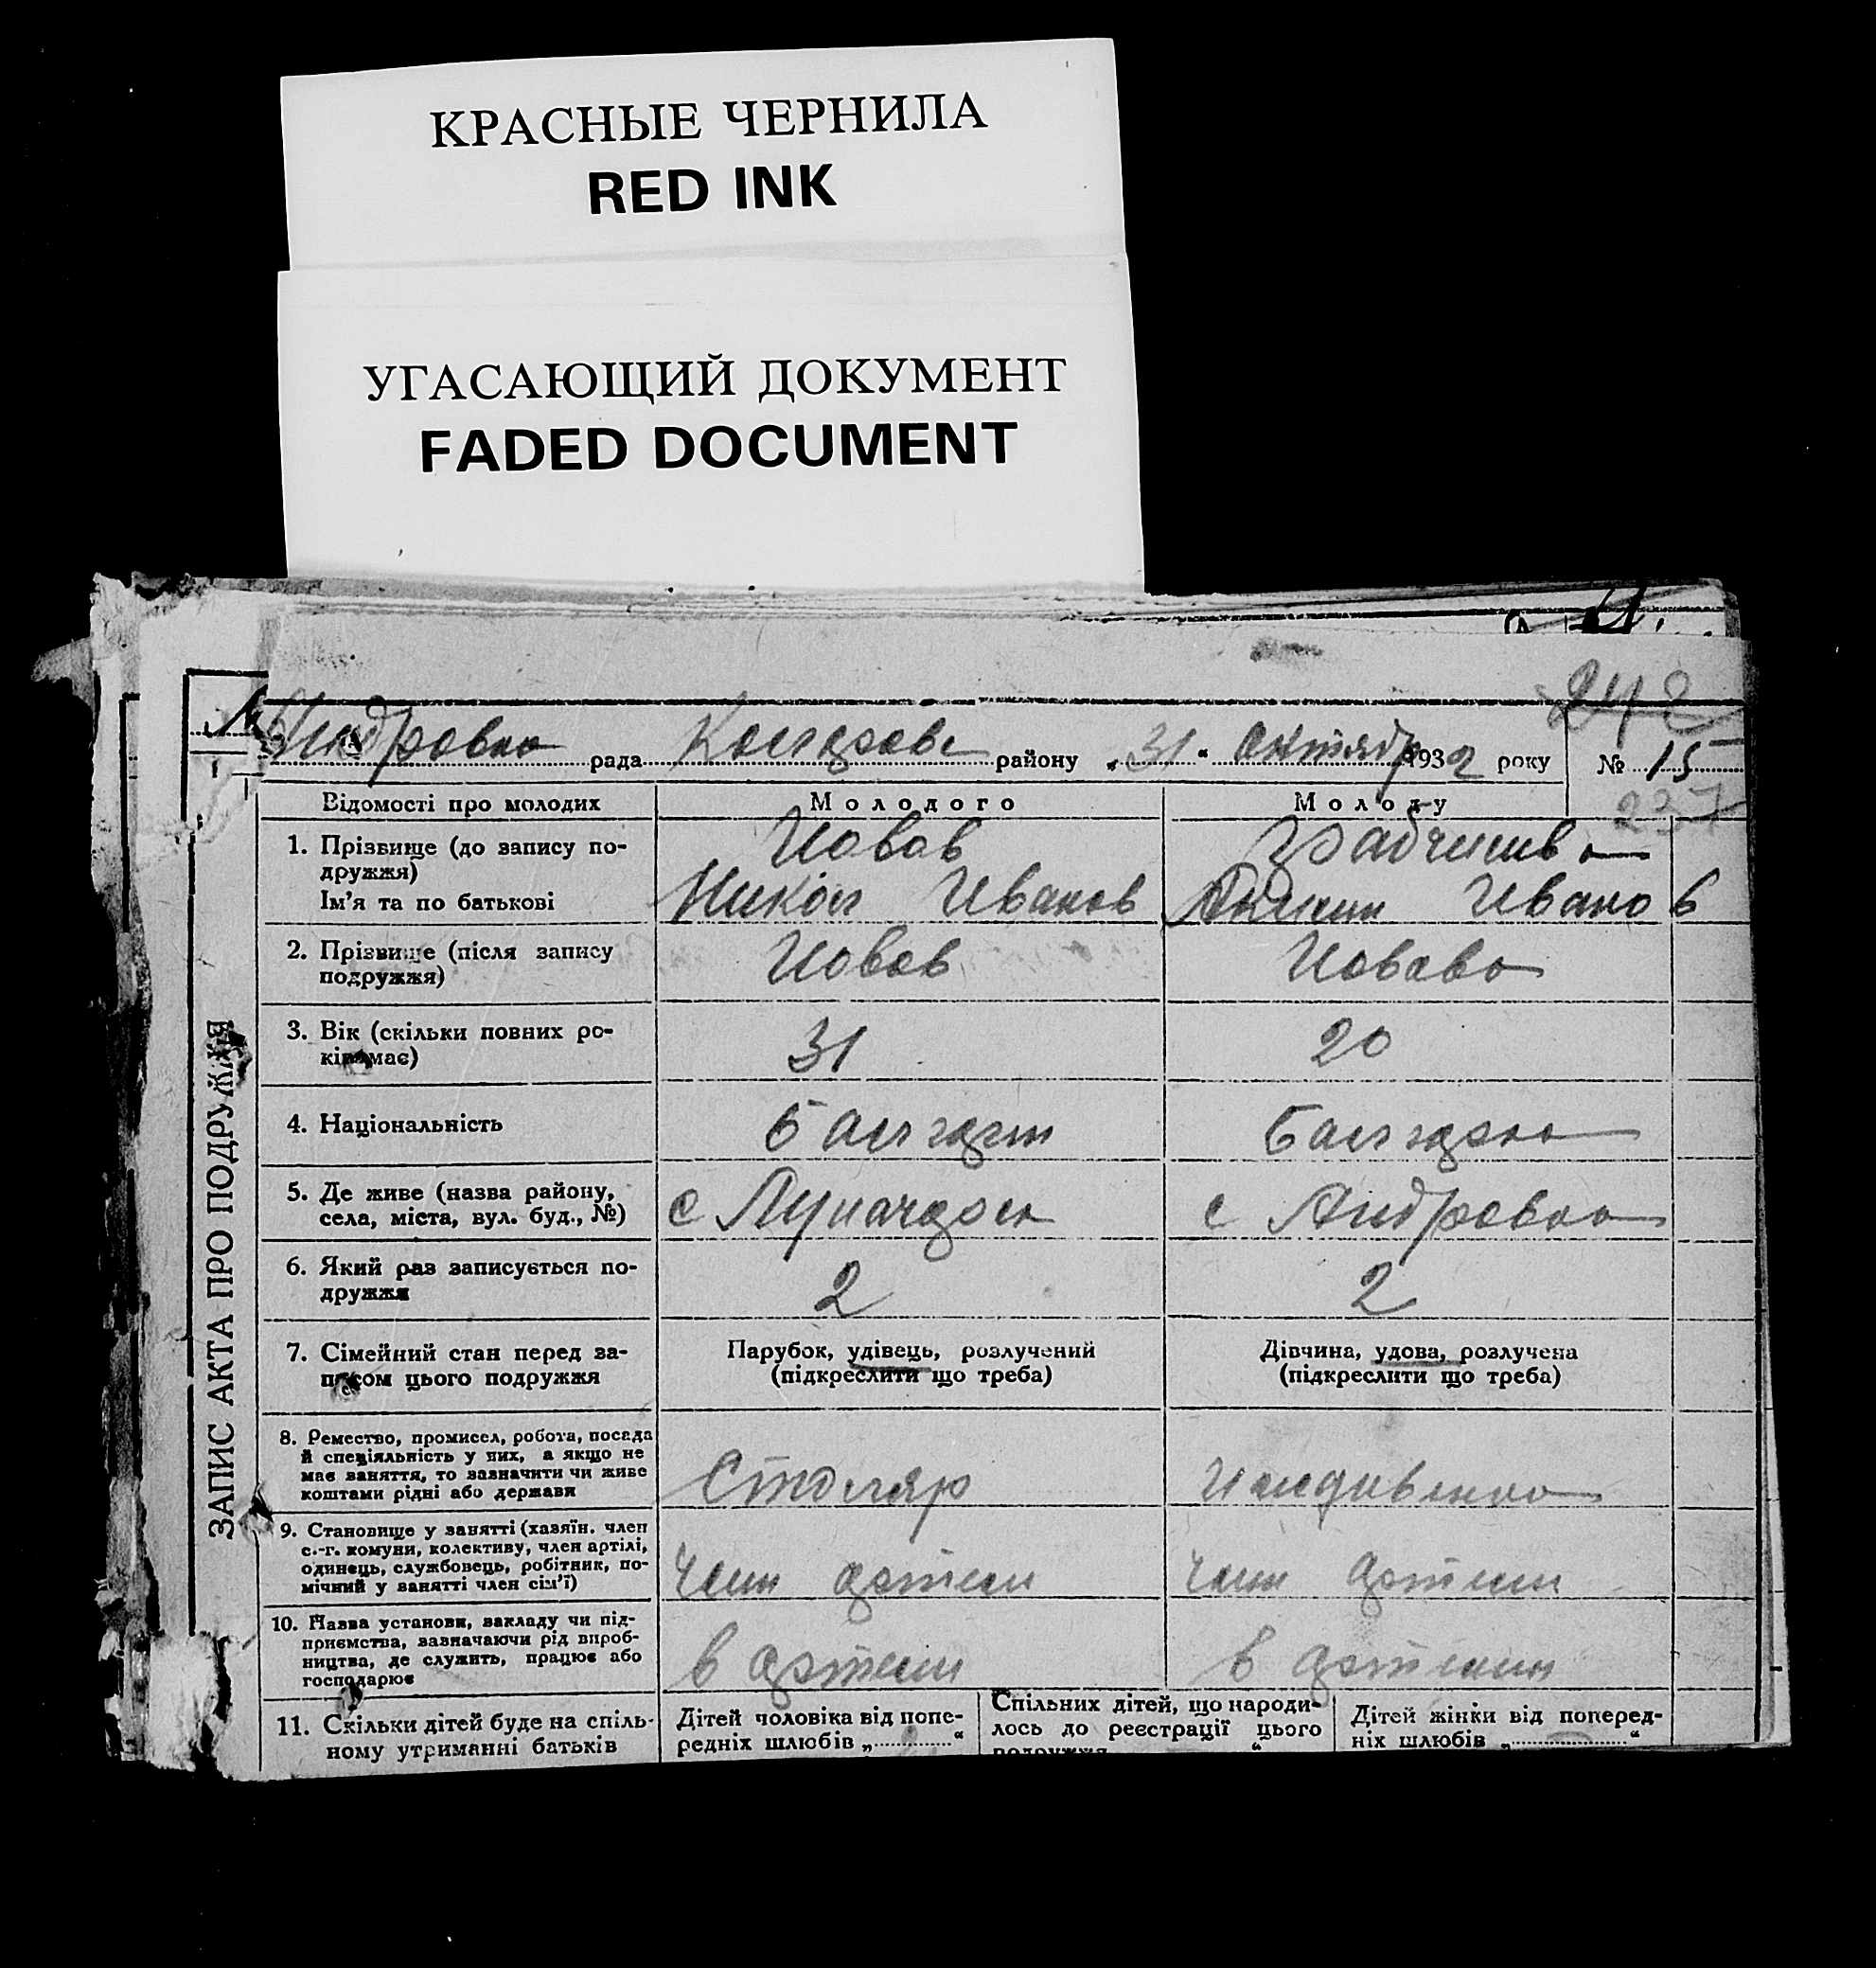 КРАСНЫЕ ЧЕРНИЛА
RED INK
УГАСАЮЩИЙ ДОКУМЕНТ
FADED DOCUMENT
242
рада району „31“ Октябр 1932 року № 15
237
ЗАПИС АКТА ПРО ПОДРУЖЖЯ
Відомості про молодих Молодого Молоду
1. Прізвище (до запису по-
дружжя)
Іовов
Ім'я та по батькові Никол Иванов Иванов
2. Прізвище (після запису
подружжя)
Іовов Іовова
3. Вік (скільки повних ро-
ків має)
31 20
4. Національність Балгарин Балгарка
5. Де живе (назва району,
села, міста, вул. буд., №)
с с Андровка
6. Який раз записується по-
дружжя
2 2
7. Сімейний стан перед за-
писом цього подружжя
Парубок, удівець, розлучений
(підкреслити що треба)
Дівчина, удова, розлучена
(підкреслити що треба)
8. Ремество, промисел, робота, посада
й спеціяльність у них, а якщо не
має заняття, то зазначити чи живе
коштами рідні або держави
Столяр
9. Становище у занятті (хазяїн, член
с.-г. комуни, колективу, член артілі,
одинець, службовець, робітник, по-
мічний у занятті член сім'ї)
член артели член артели
10. Назва установи, закладу чи під-
приємства, зазначаючи рід вироб-
ництва, де служить, працює або
господарює
в артели в артели
11. Скільки дітей буде на спіль-
ному утриманні батьків
Дітей чоловіка від попе-
редніх шлюбів „ “
Спільних дітей, що народи-
лось до реєстрації цього
подружжя
Дітей жінки від поперед-
ніх шлюбів „ “